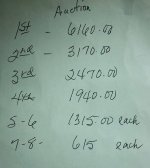 Auction
1st - 6160.00
2nd - 3170.00
3rd 2470.00
4th 1940.00
5-6 1315.00 each
7-8- 615 each